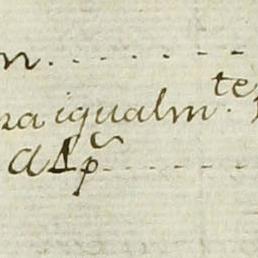 n. - - - - - -
na igualm.te
a Ap̃ - - - - -